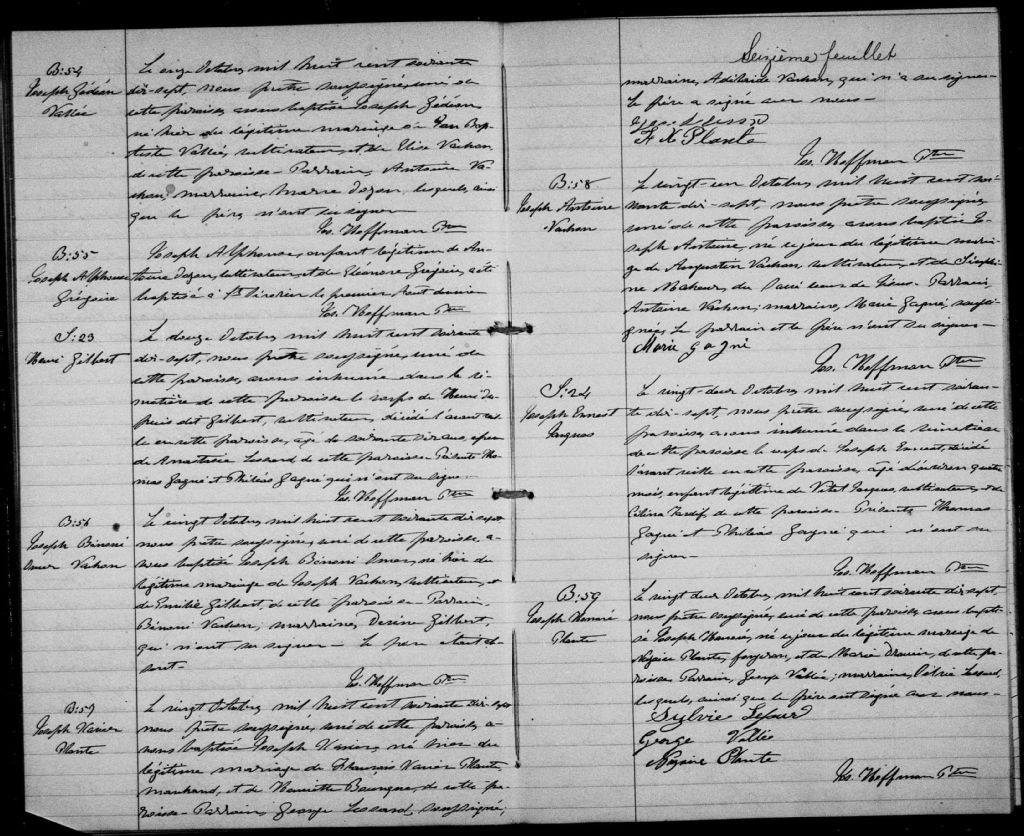 B:54
Joseph Gédéon
Vallée
Le onze Octobre mil huit cent soixante
dix-sept, nous prêtre soussigné, curé de
cette paroisse, avons baptisé Joseph Gédéon
né hier du légitime mariage de Jean Bap-
tiste Vallée, cultivateur, et de Elise Vachon
de cette paroisse - Parrain, Antoine Va-
chon, marraine, Marie Doyon, lesquels, ainsi
que le père, n'ont su signer
Jos. Hoffman Ptre
B:55
Joseph Alphonse
Grégoire
Joseph Alphonse, enfant légitime de An-
toine Doyon, cultivateur, et de Eléonore Grégoire, a été
baptisé à St le premier Août dernier
Jos. Hoffman Ptre
S:23
Henri Gilbert
Le douze Octobre mil huit cent soixante
dix-sept, nous prêtre soussigné, curé de
cette paroisse, avons inhumé dans le ci-
metière de cette paroisse le corps de Henri
dit Gilbert, cultivateur, décédé l'avant veil-
le en cette paroisse, agé de soixante dix ans, époux
de Anastasie Lessard de cette paroisse - Présents Tho-
mas Gagné et Philéas Gagné qui n'ont su signer -
Jos. Hoffman Ptre
B:56
Joseph Bénoni
Omer Vachon
Le vingt Octobre mil huit cent soixante dix sept
nous prêtre soussigné, curé de cette paroisse, a-
vons baptisé Joseph Bénoni Omer, né hier du
légitime mariage de Joseph Vachon, cultivateur, et
de Emilie Gilbert, de cette paroisse - Parrain,
Bénoni Vachon; marraine, Gilbert,
qui n'ont su signer - le père étant ab-
sent -
Jos. Hoffman Ptre
B:57
Joseph Xavier
Plante
Le vingt Octobre mil huit cent soixante dix-sept
nous prêtre soussigné, curé de cette paroisse, a-
vons baptisé Joseph Xavier, né hier du
légitime mariage de François Xavier Plante,
marchand, et de Henriette Bourque, de cette pa-
roisse - Parrain, George Lessard, soussigné;
Seizième feuillet
marraine, Adélaide Vachon, qui n'a su signer -
Le père a signé avec nous -
F X Plante
Jos. Hoffman Ptre
B:58
Joseph Antoine
Vachon
Le vingt-un Octobre mil huit cent soi-
xante dix-sept, nous prêtre soussigné,
curé de cette paroisse, avons baptisé Jo-
seph Antoine, né ce jour du légitime maria-
ge de Augustin Vachon, cultivateur, et de Séraphi-
ne Maheux, du lieu - Parrain,
Antoine Vachon; marraine, Marie Gagné, soussi-
gnée, le parrain et le père n'ont su signer -
Marie Gagné
Jos. Hoffman Ptre
S:24
Joseph Ernest
Jacques
Le vingt-deux Octobre mil huit cent soixan-
te dix-sept, nous prêtre soussigné, curé de cette
paroisse, avons inhumé dans le cimetière
de cette paroisse le corps de Joseph Ernest, décédé
l'avant veille en cette paroisse, agé d'environ quatre
mois, enfant légitime de Vital Jacques, cultivateur, et de
Célina Tardif de cette paroisse - Présents Thomas
Gagné et Philéas Gagné qui n'ont su
signer -
Jos. Hoffman Ptre
B:59
Joseph Honoré
Plante
Le vingt deux Octobre mil huit cent soixante dix sept,
nous prêtre soussigné, curé de cette paroisse, avons bapti-
sé Joseph Honoré, né ce jour du légitime mariage de
Nazaire Plante, forgeron, et de Marie Drouin, de cette pa-
roisse - Parrain, George Vallée; marraine, Lessard,
lesquels, ainsi que le père ont signé avec nous -
Sylvie Lessard
George Vallée
Nazaire Plante
Jos. Hoffman Ptre